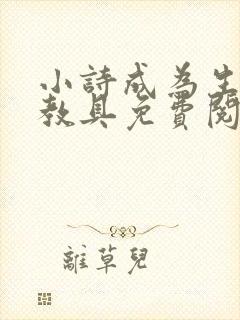 小詩成為生
教具免費閱
離草兒